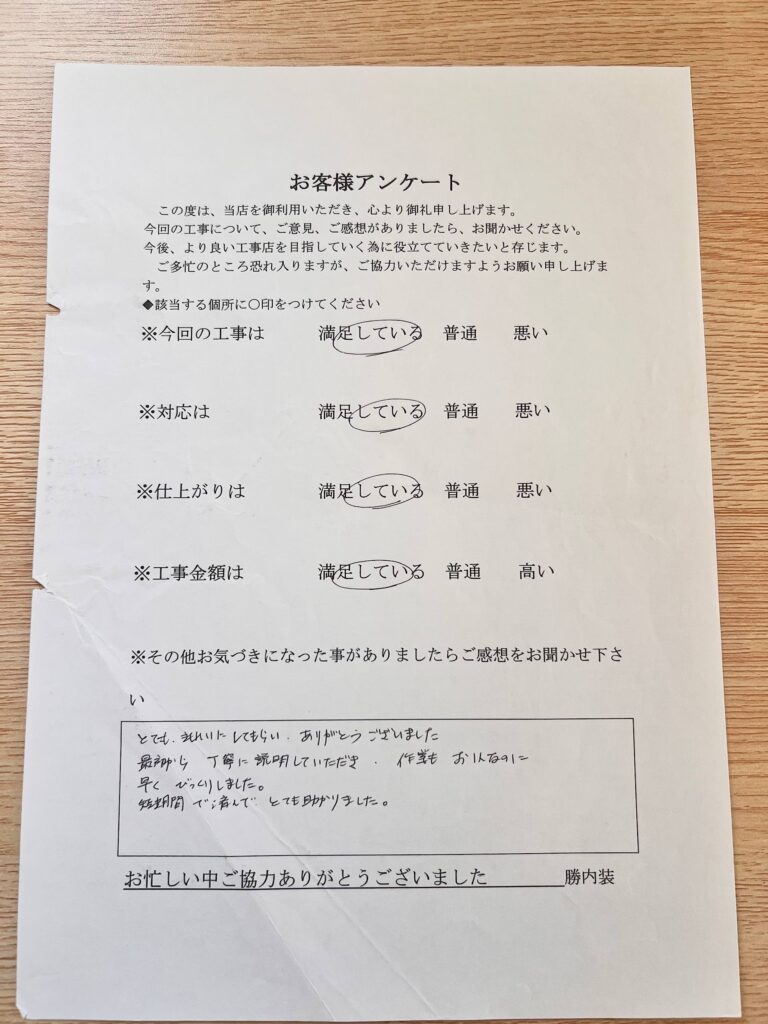 お客様アンケート
この度は、当店を御利用いただき、心より御礼申し上げます。
今回の工事について、ご意見、ご感想がありましたら、お聞かせください。
今後、より良い工事店を目指していく為に役立てていきたいと存じます。
ご多忙のところ恐れ入りますが、ご協力いただけますようお願い申し上げま
す。
◆該当する個所に〇印をつけてください
※今回の工事は 満足している 普通 悪い
※対応は 満足している 普通 悪い
※仕上がりは 満足している 普通 悪い
※工事金額は 満足している 普通 高い
※その他お気づきになった事がありましたらご感想をお聞かせ下さ
い
とても、きれいにしてもらい、ありがとうございました
最初から 丁寧に説明していただき、作業も
早く びっくりしました。
短期間で済んで とても助かりました。
お忙しい中ご協力ありがとうございました 勝内装